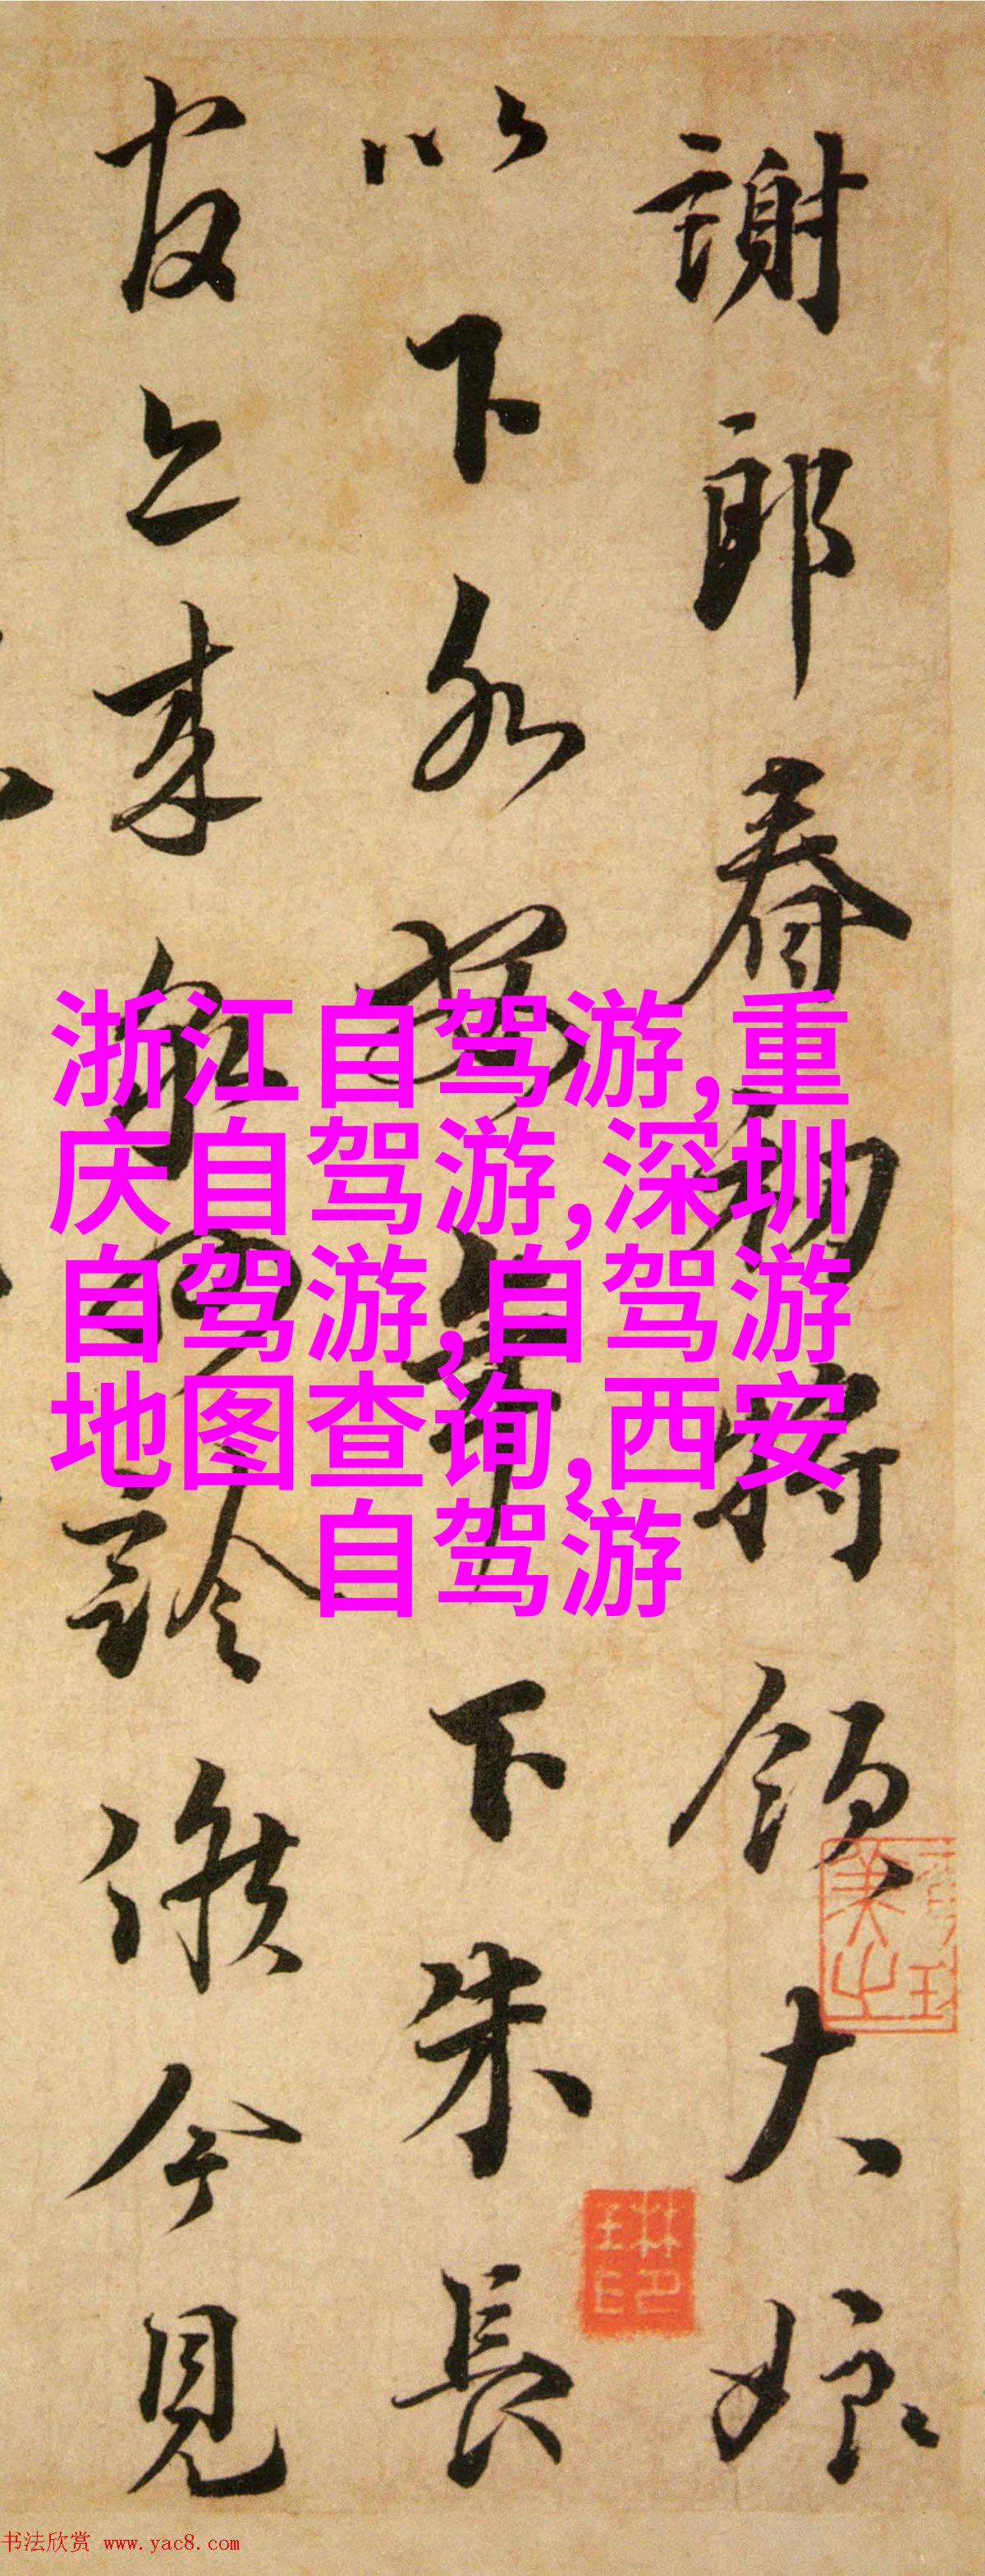 謝郎春初將領大娘
以下水
下朱長
官上來
診候今見
浙江自驾游,重
庆自驾游,深圳
自驾游,自驾游
地图查询,西安
自驾游
书法欣赏 www.yac8.com